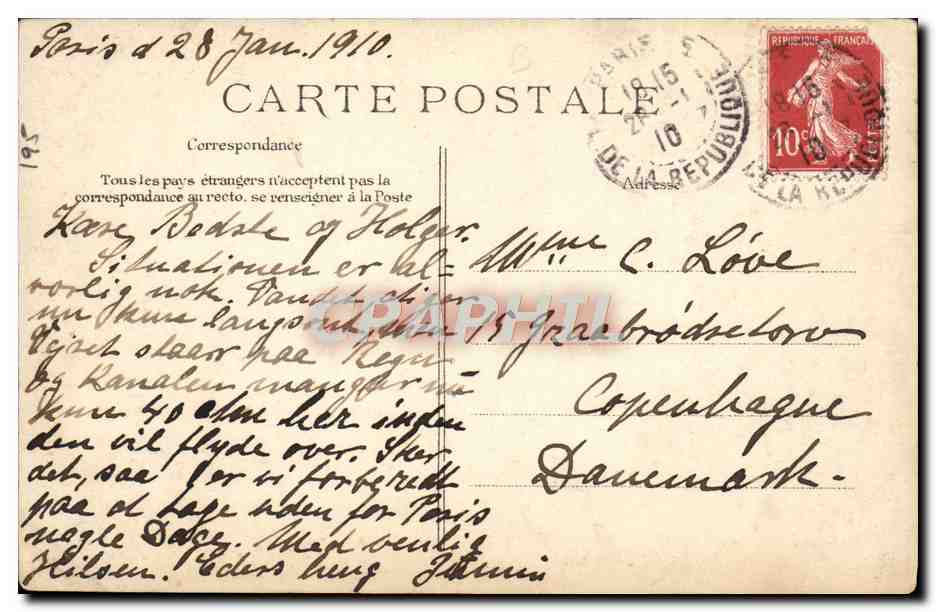 Paris d 28 Jan. 1910.
195
CARTE POSTALE
Correspondance
Tous les pays étrangers n'acceptent pas la
correspondance au recto. se renseigner à la Poste
Kære Bedste og Holger.
Situationen er al=
vorlig nok. Vandet stiger
nu kun langsomt, men
Vejret staar paa Regn
og Kanalen mangler nu
kun 40 ctm her inden
den vil flyde over. Sker
det, saa er vi forberedt
paa at tage uden for Paris
nogle Dage. Med venlig
Hilsen. Eders heng
Adresse
Mme C. Løve
15 Graabrødretorv
Copenhague
Danemark-
REPUBLIQUE FRANÇAISE
10c
PARIS
18 15
10
DE LA REPUBLIQUE
DE LA REPUBLIQUE
CPAPHIL